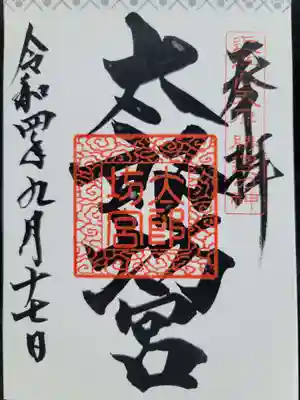 奉拝
太郎坊宮
太郎
坊宮
令和四年九月十七日